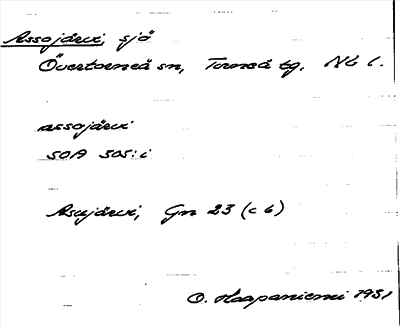 Assojärvi, sjö
Övertorneå sn, Torneå tg, Nb l.
assojärvi
SOA 305:i
Asujärvi, Gn 23 (c 6)
O. Haapaniemi 1931